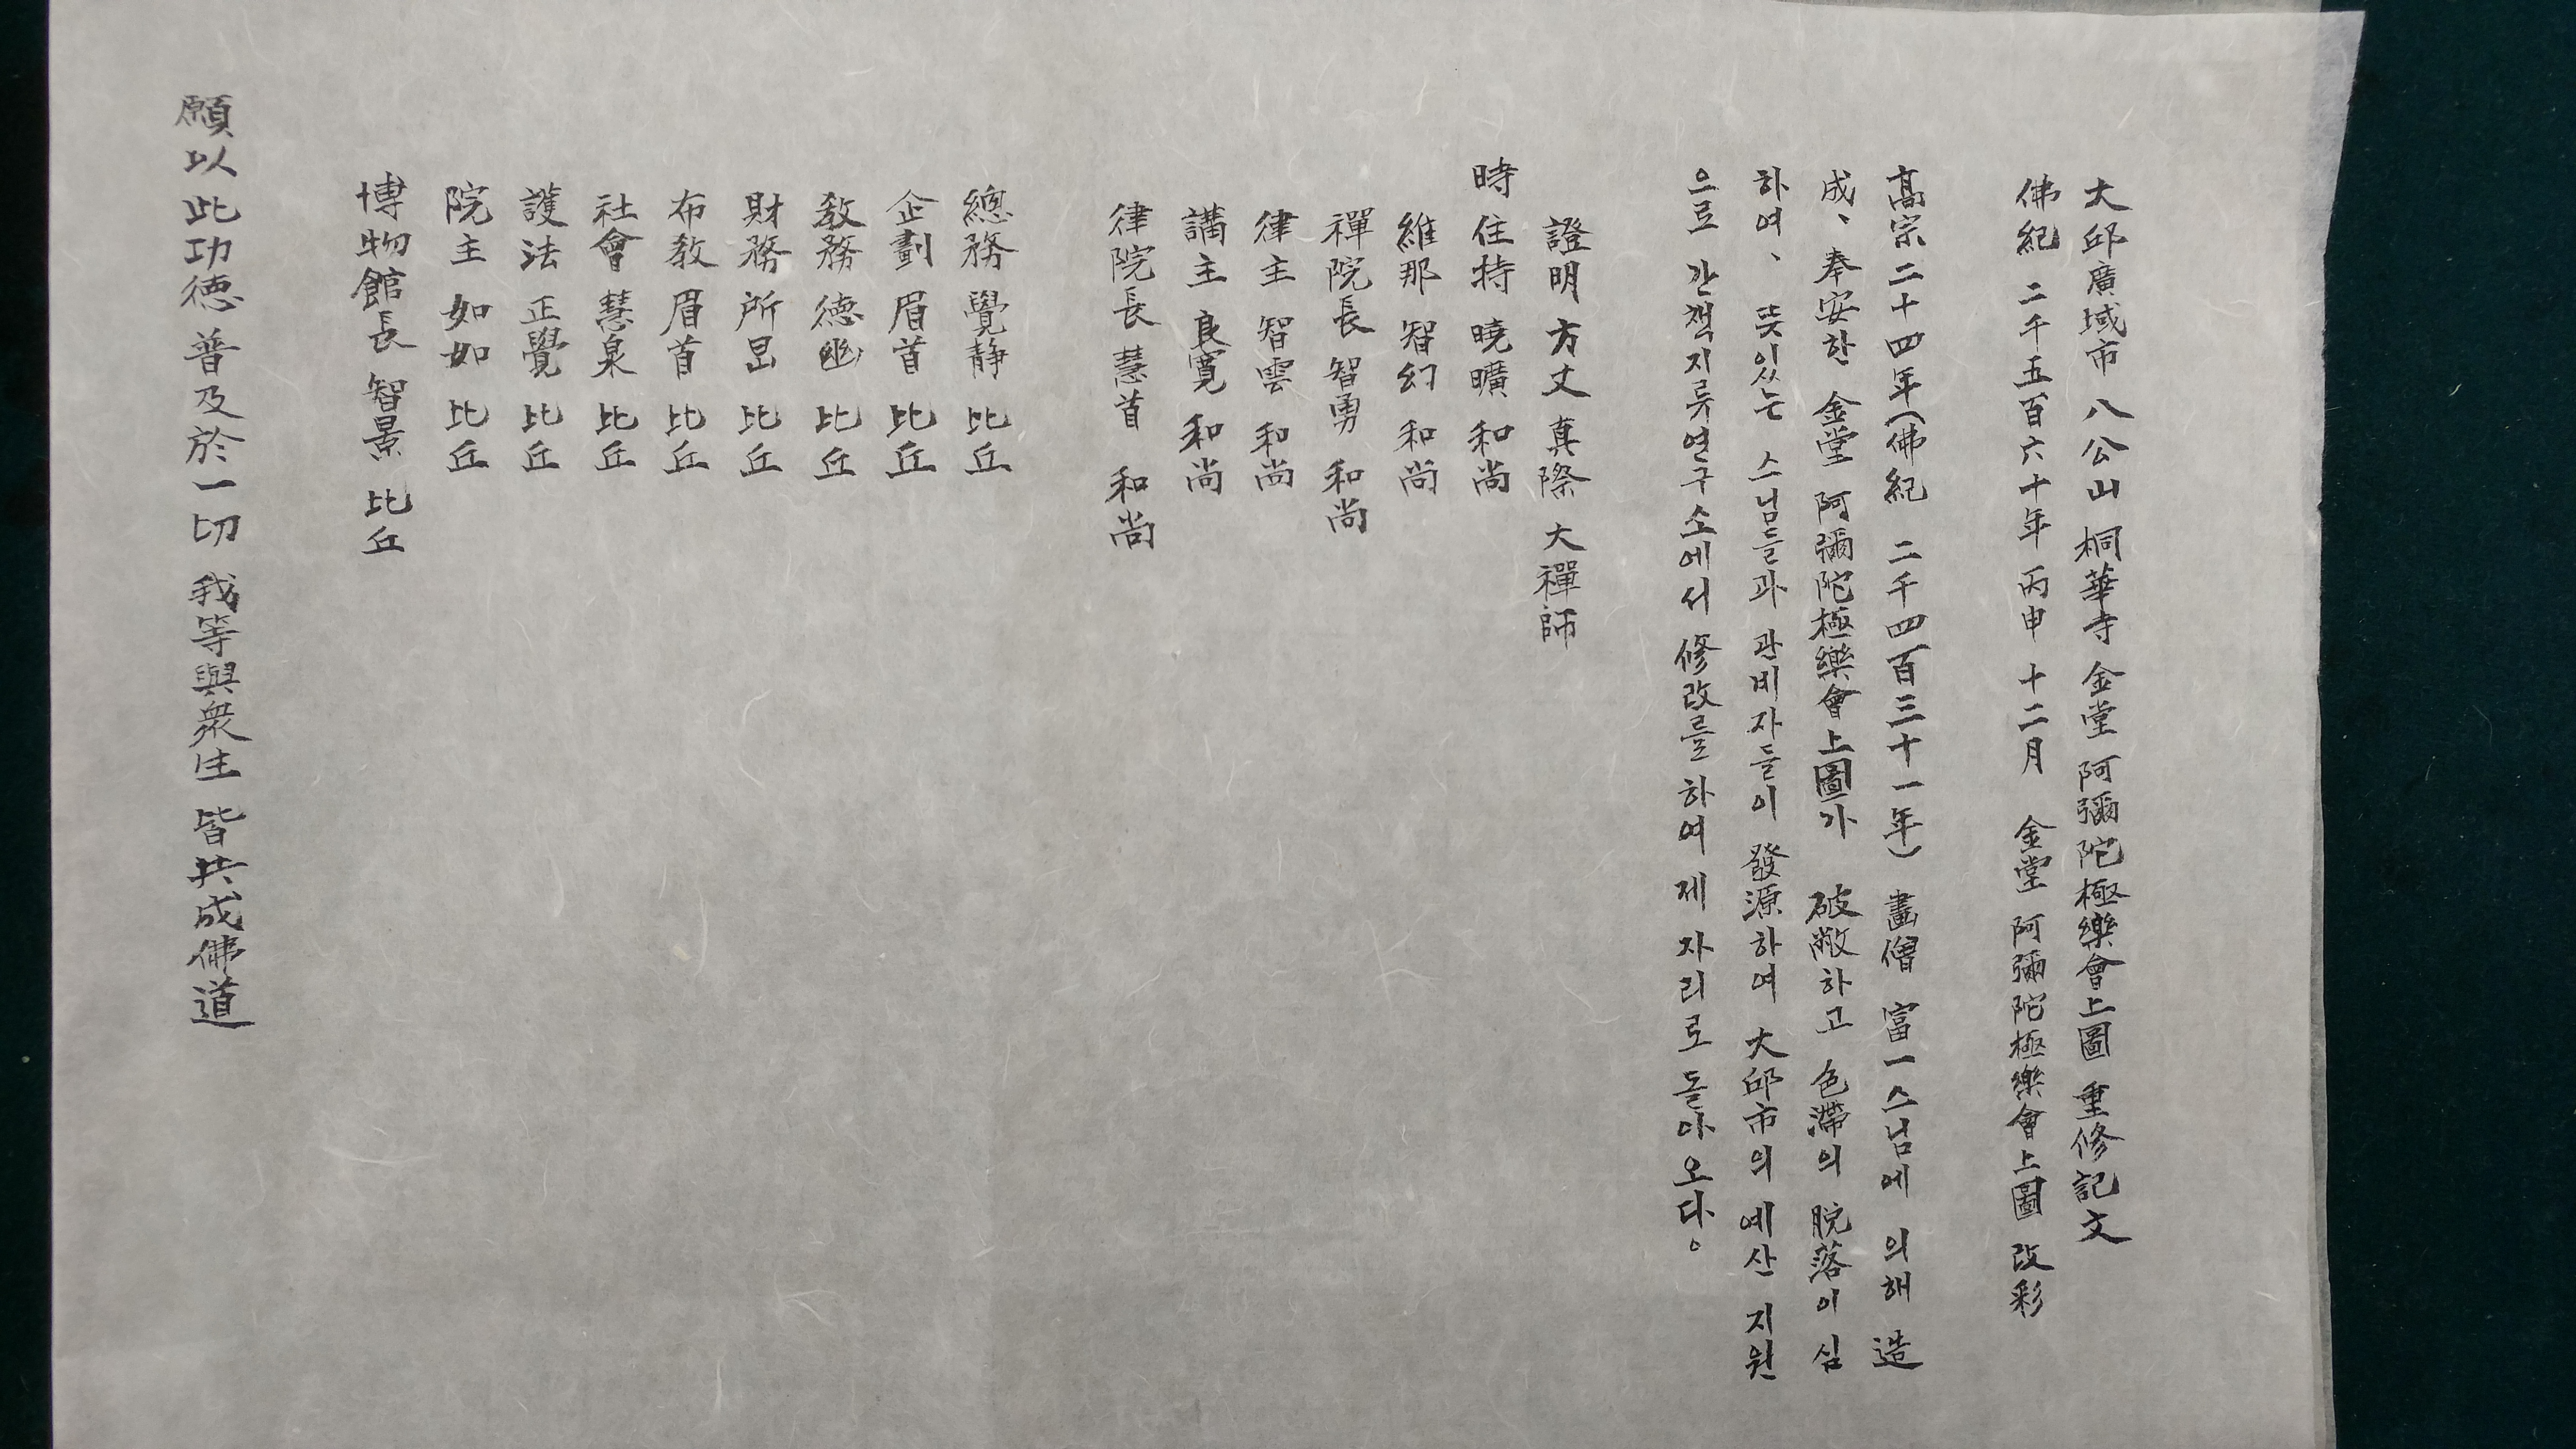 大邱廣域市 八公山 桐華寺 金堂 阿彌陀極樂會上圖 重修記文
佛紀 二千五百六十年 丙申 十二月 金堂 阿彌陀極樂會上圖 改彩
高宗 二十四年(佛紀 二千四百三十一年) 畵僧 富一스님에 의해 造
成、奉安한 金堂 阿彌陀極樂會上圖가 破敝하고 色滯의 脫落이 심
하여、 뜻있는 스님들과 관비자들이 發源하여 大邱市의 예산 지원
으로 간책지류연구소에서 修改를 하여 제자리로 돌아오다。
證明 方丈 真際 大禪師
時 住持 曉曠 和尚
維那 智幻 和尚
禪院長 智勇 和尚
律主 智雲 和尚
講主 良寬 和尚
律院長 慧首 和尚
總務 覺静 比丘
企劃 眉首 比丘
敎務 德幽 比丘
財務 所昱 比丘
布教 眉首 比丘
社會 慧泉 比丘
護法 正覺 比丘
院主 如如 比丘
博物館長 智景 比丘
願以此功德 普及於一切 我等與衆生 皆共成佛道